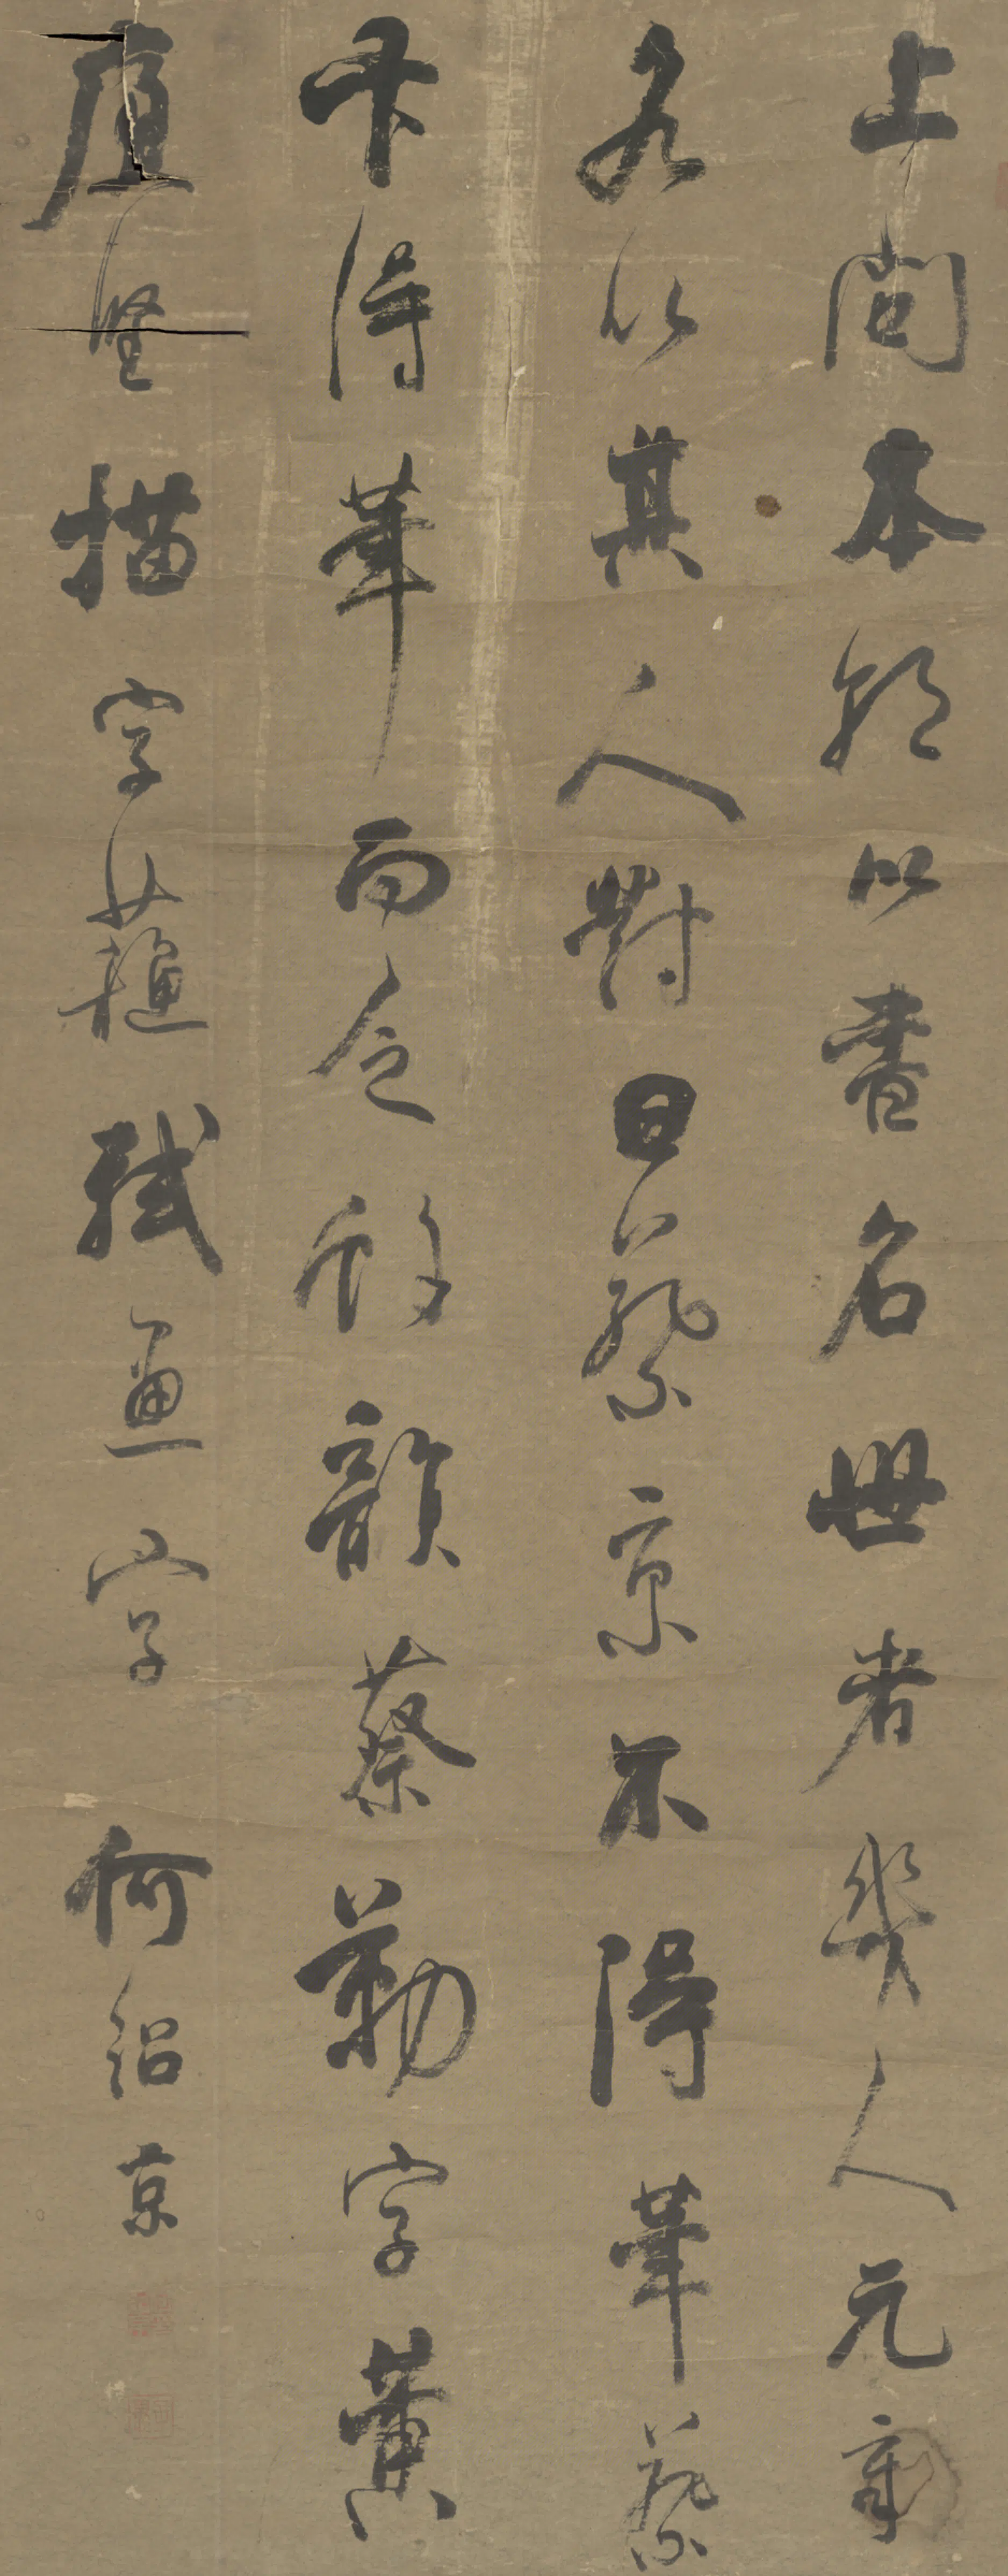 上問本朝以書名世者幾人元章
各以其人對曰蔡京不得筆蔡
卞得筆而乏韻蔡勒字黃
庭堅描字蘇軾畫字 何紹京